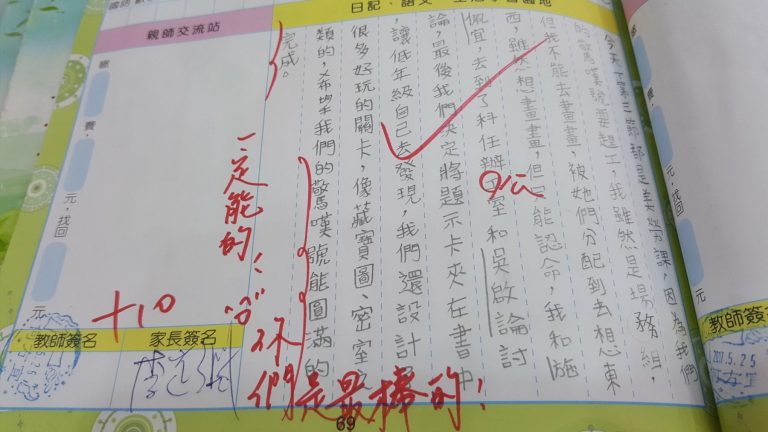 日記、語文、生活學習園地
今天第二節都是美勞課，因為我們
的驚嘆號要趕工，我雖然是場務組，
但我不能去畫畫，被她們分配到去想東
西，雖然想畫畫，但只能認命，我和施
佩宜，去到了科任辦公室和吳啟論討
論，最後我們決定將題示卡夾在書中
，讓低年級自己去發現，我們還設計
很多好玩的關卡，像藏寶圖、密室
類的，希望我們的驚嘆號能圓滿的
完成。
公
一定能的！
你
們是最棒的！
+10
親師交流站
繳
費，
元，找回
元
教師簽名
家長簽名
69
元，找回
元
教師簽名
2017.5.25